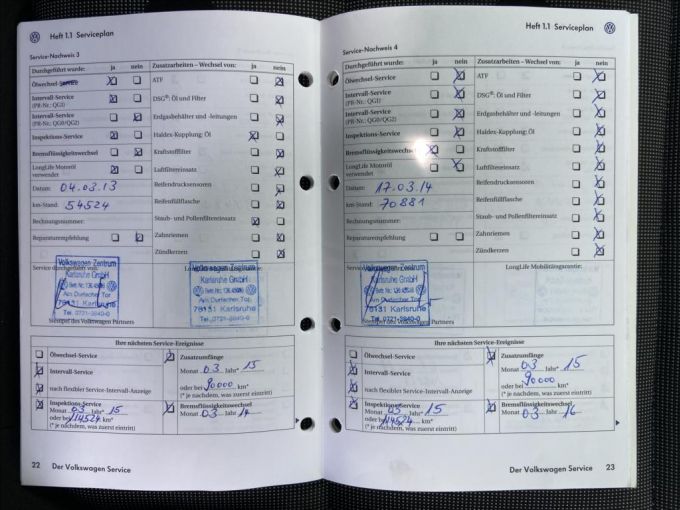 Heft 1.1 Serviceplan
Service-Nachweis 3
Durchgeführt wurde: ja nein
Ölwechsel-Service
Intervall-Service
(PR-Nr.: QG1)
Intervall-Service
(PR-Nr.: QG0/QG2)
Inspektions-Service
Bremsflüssigkeitswechsel
LongLife Motoröl
verwendet
Datum: 04.03.13
km-Stand: 54524
Rechnungsnummer:
Reparaturempfehlung
Zusatzarbeiten – Wechsel von: ja nein
ATF
DSG®: Öl und Filter
Erdgasbehälter und -leitungen
Haldex-Kupplung: Öl
Kraftstofffilter
Luftfiltereinsatz
Reifendrucksensoren
Reifenfüllflasche
Staub- und Pollenfiltereinsatz
Zahnriemen
Zündkerzen
Service durchgeführt von:
Volkswagen Zentrum
Karlsruhe GmbH
Am Durlacher Tor
76131 Karlsruhe
Tel. 0721-3840-0
Stempel des Volkswagen Partners
Volkswagen Zentrum
Karlsruhe GmbH
Am Durlacher Tor
76131 Karlsruhe
Tel. 0721-3840-0
Ihre nächsten Service-Ereignisse
Ölwechsel-Service
Intervall-Service
nach flexibler Service-Intervall-Anzeige
Inspektions-Service
Monat 03 Jahr* 15
oder bei 114524 km*
(* je nachdem, was zuerst eintritt)
Zusatzumfänge
Monat 03 Jahr* 15
oder bei 90000 km*
(* je nachdem, was zuerst eintritt)
Bremsflüssigkeitswechsel
Monat 03 Jahr 14
22 Der Volkswagen Service
Heft 1.1 Serviceplan
Service-Nachweis 4
Durchgeführt wurde: ja nein
Ölwechsel-Service
Intervall-Service
(PR-Nr.: QG1)
Intervall-Service
(PR-Nr.: QG0/QG2)
Inspektions-Service
Bremsflüssigkeitswechsel
LongLife Motoröl
verwendet
Datum: 17.03.14
km-Stand: 70881
Rechnungsnummer:
Reparaturempfehlung
Zusatzarbeiten – Wechsel von: ja nein
ATF
DSG®: Öl und Filter
Erdgasbehälter und -leitungen
Haldex-Kupplung: Öl
Kraftstofffilter
Luftfiltereinsatz
Reifendrucksensoren
Reifenfüllflasche
Staub- und Pollenfiltereinsatz
Zahnriemen
Zündkerzen
Service durchgeführt von:
LongLife Mobilitätsgarantie:
Volkswagen Zentrum
Karlsruhe GmbH
Am Durlacher Tor
76131 Karlsruhe
Tel. 0721-3840-0
Stempel des Volkswagen Partners
Ihre nächsten Service-Ereignisse
Ölwechsel-Service
Intervall-Service
nach flexibler Service-Intervall-Anzeige
Inspektions-Service
Monat 03 Jahr* 15
oder bei 114524 km*
(* je nachdem, was zuerst eintritt)
Zusatzumfänge
Monat 03 Jahr* 15
oder bei 90000 km*
(* je nachdem, was zuerst eintritt)
Bremsflüssigkeitswechsel
Monat 03 Jahr 16
Der Volkswagen Service 23